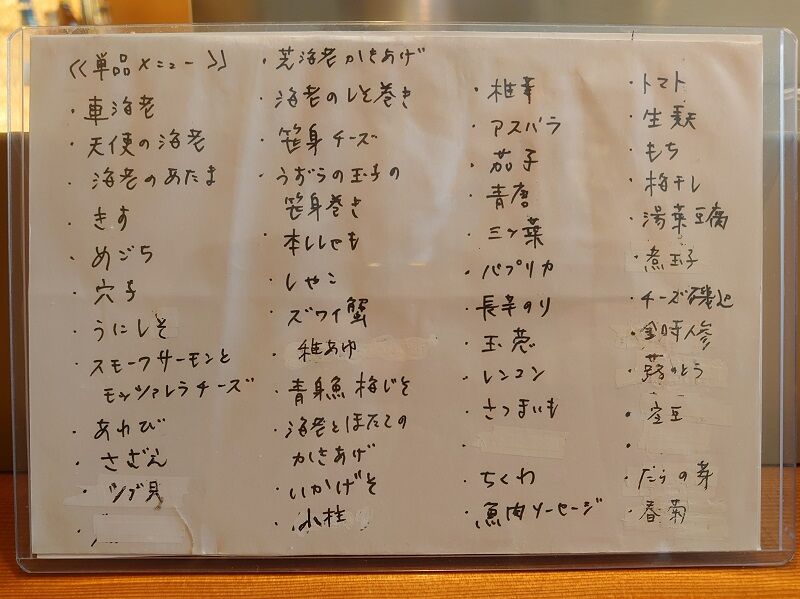 ≪単品メニュー≫
・車海老
・天使の海老
・海老のあたま
・きす
・めごち
・穴子
・うにしそ
・スモークサーモンと
モッツァレラチーズ
・あわび
・さざえ
・ツブ貝
・芝海老かきあげ
・海老のしそ巻き
・笹身チーズ
・うずらの玉子の
笹身巻き
・本ししゃも
・しゃこ
・ズワイ蟹
・稚あゆ
・青身魚梅じそ
・海老とほたての
かきあげ
・いかげそ
・小柱
・椎茸
・アスパラ
・茄子
・青唐
・三ツ葉
・パプリカ
・長芋のり
・玉葱
・レンコン
・さつまいも
・ちくわ
・魚肉ソーセージ
・トマト
・生麩
・もち
・梅干し
・湯葉豆腐
・煮玉子
・チーズ磯辺
・金時人参
・蕗のとう
・空豆
・たらの芽
・春菊